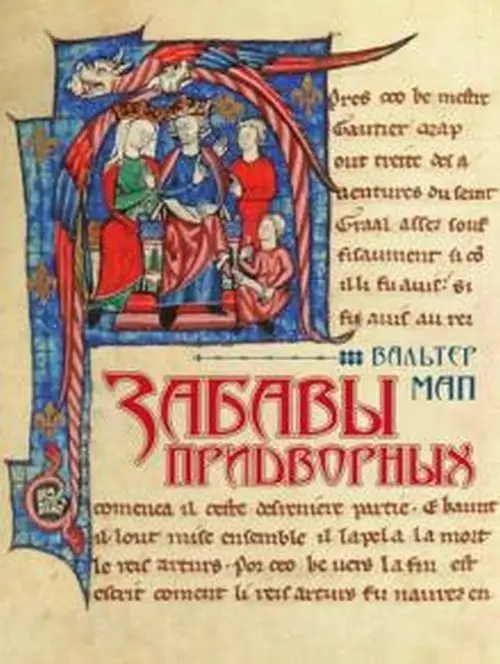 pres coo be mestre
Gautier map
out treite des a
uentures du seint
Graal assez souf
fisaument si cō
il li fu auis: si
fu auis au rei
ВАЛЬТЕР
МАП
ЗАБАВЫ
ПРИДВОРНЫХ
comenca il ceste desreniere partie. E haunt
il lout mise ensemble il lapela la mort
le reis arturs. Por coo be uers la fin est
escrit coment li reis arturs fu naurez en